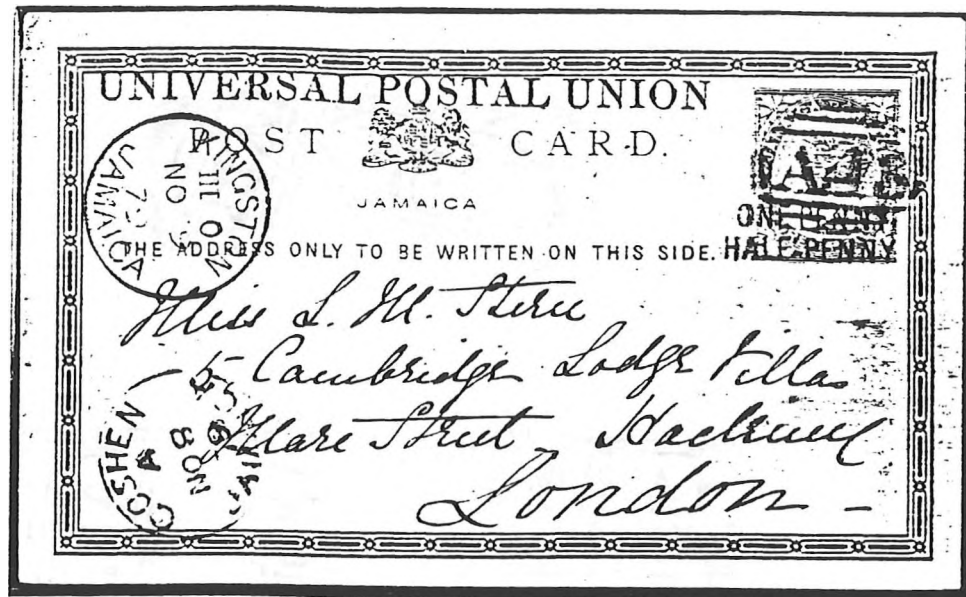 UNIVERSAL POSTAL UNION
POST CARD.
JAMAICA
THE ADDRESS ONLY TO BE WRITTEN ON THIS SIDE.
ONE PENNY
HALF-PENNY
KINGSTON
JAMAICA
NO
Miss L. M. Stern
5 Cambridge Lodge Villas
Mare Street Hackney
London -
GOSHEN
A
NO 8